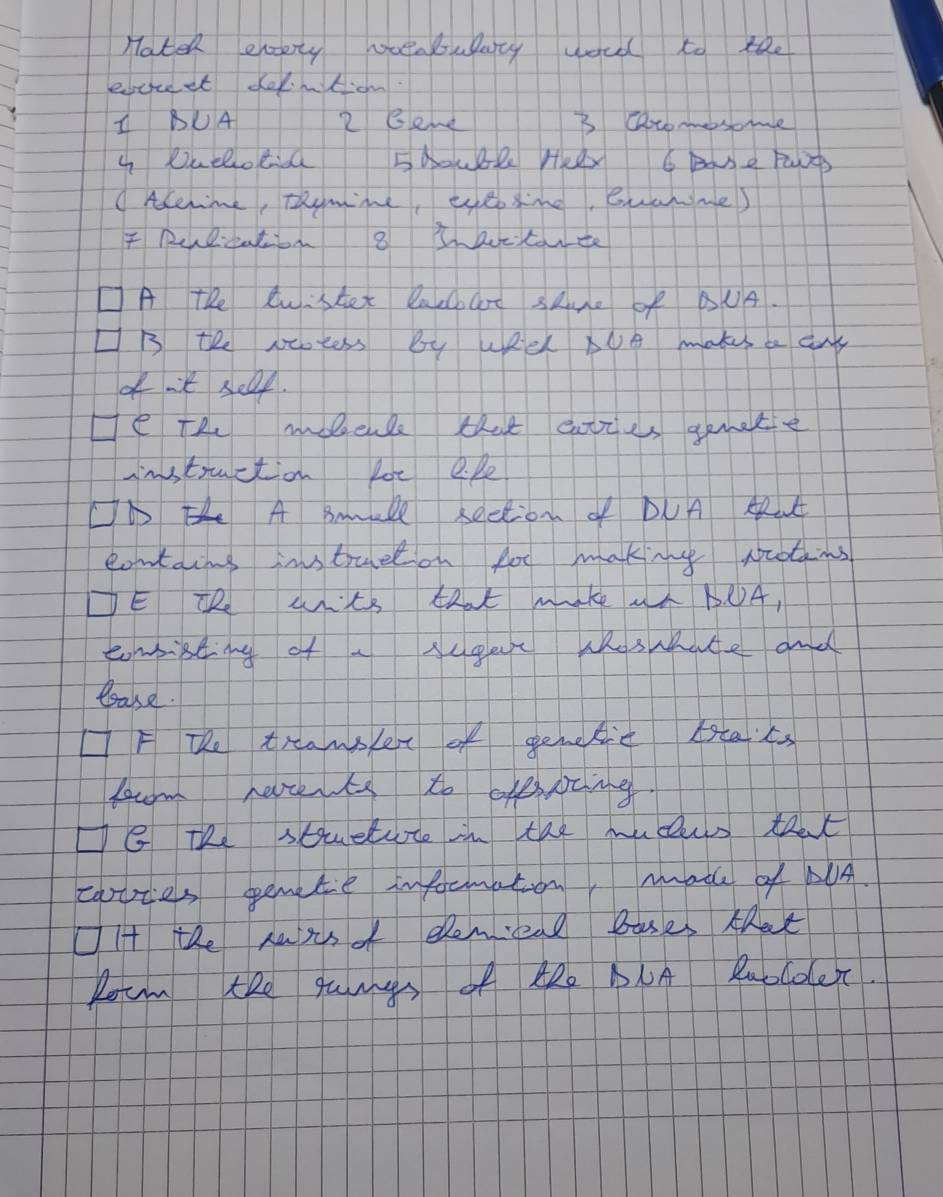 Match every vocabulary word to the
correct definition.
1 DNA 2 Gene 3 Chromosome
4 Nucleotide 5 Double Helix 6 Base Pairs
(Adenine, Thymine, cytosine, Guanine)
7 Replication 8 Inheritance
A The twister ladder shape of DNA.
B the process by which DNA makes a copy
of it self.
C The molecule that carries genetic
instruction for life
D the A small section of DNA that
contains instruction for making protains
E The units that make up DNA,
consisting of a sugar phosphate and
base.
F The transfer of genetic traits
from parents to offspring.
G The structure in the nucleus that
carries genetic information, made of DNA.
H the pairs of chemical bases that
form the rungs of the DNA ladder.